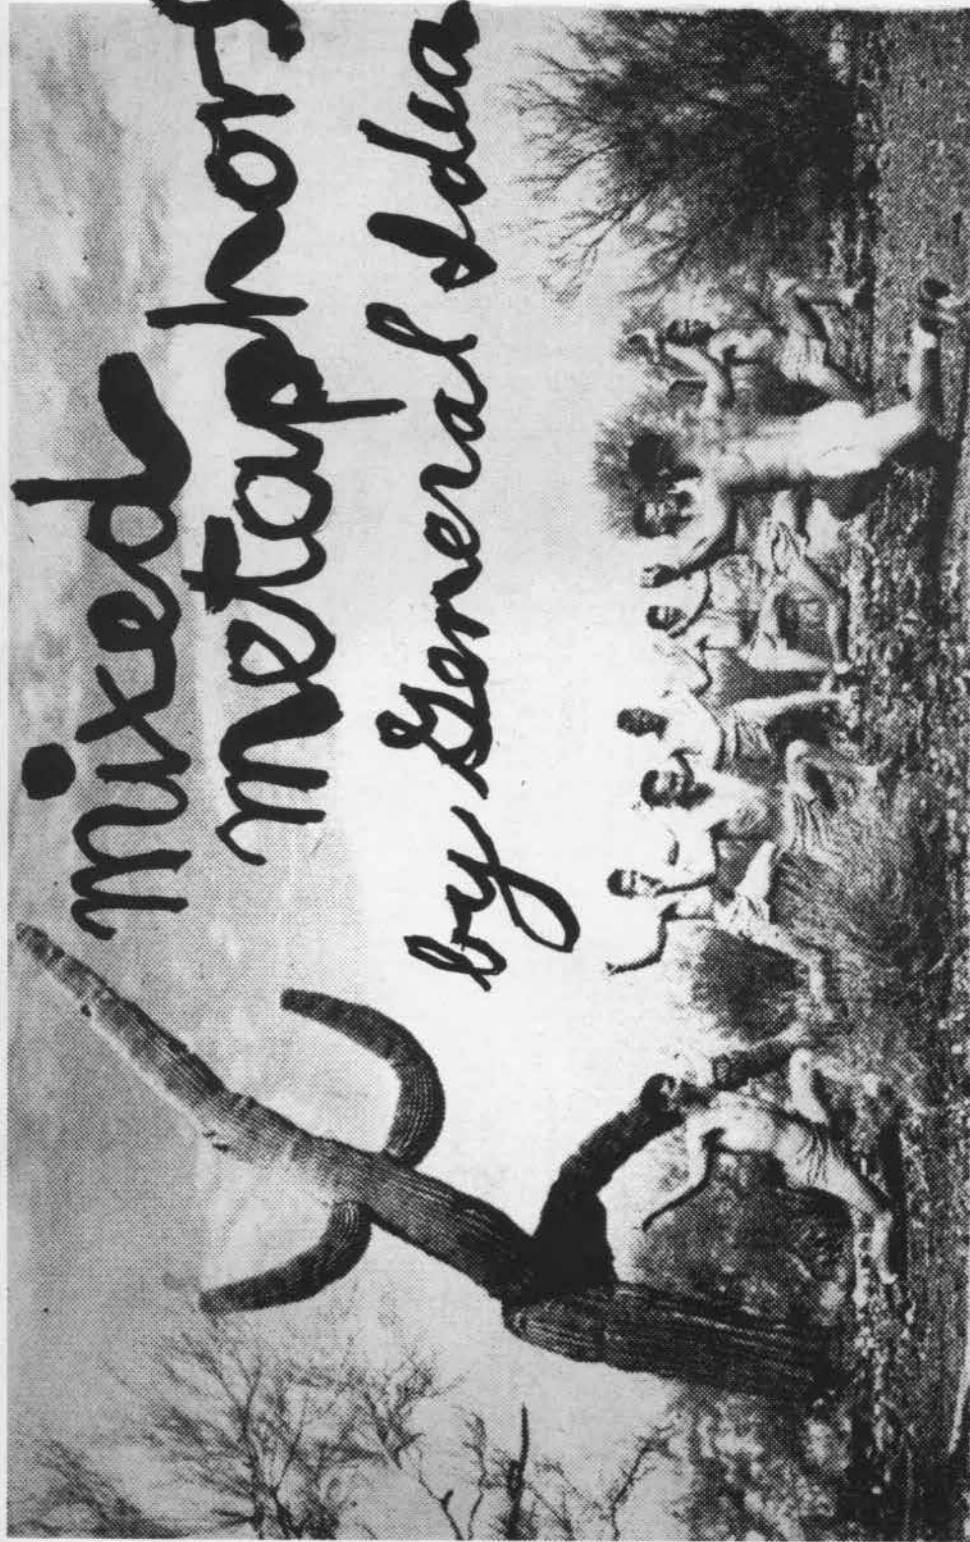 mixed
metaphors
by General Idea